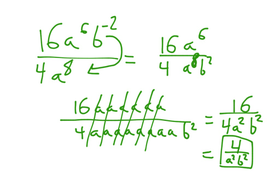 16a⁶b⁻² / 4a⁸ = 16a⁶ / 4a⁸b²
16aaaaaa / 4aaaaaaaab² = 16 / 4a²b²
= 4 / a²b²